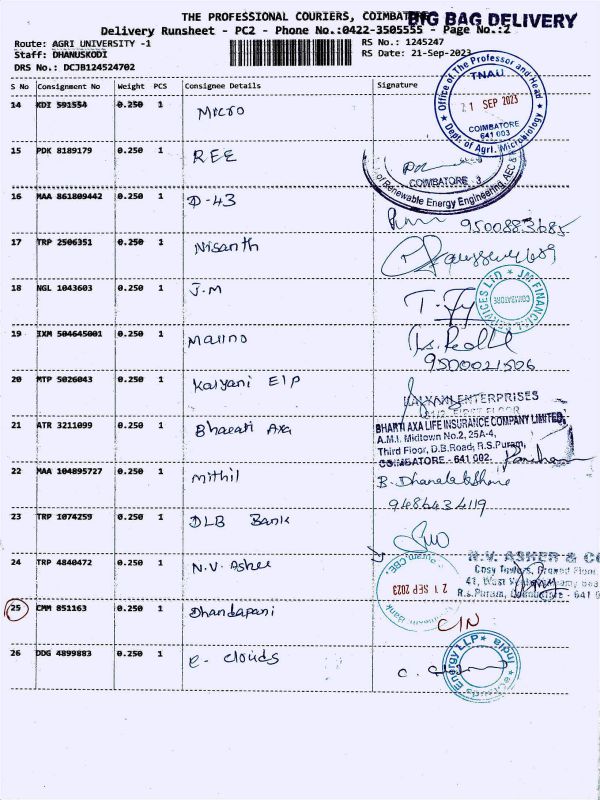 THE PROFESSIONAL COURIERS, COIMBATORE
BIG BAG DELIVERY
Delivery Runsheet - PC2 - Phone No.:0422-3505555 - Page No.:2
Route: AGRI UNIVERSITY -1
RS No.: 1245247
Staff: DHANUSKODI
RS Date: 21-Sep-2023
DRS No.: DCJB124524702
S No Consignment No Weight PCS Consignee Details Signature
Office of The Professor and Head
TNAU
21 SEP 2023
COIMBATORE
641 003
Dept. of Agri. Microbiology
14 KDI 591554 0.250 1 Micro
15 PDK 8189179 0.250 1 REE
COIMBATORE - 3
of Renewable Energy Engineering, AEC &
16 MAA 861809442 0.250 1 D-43
9500883685
17 TRP 2506351 0.250 1 Nisanth
18 NGL 1043603 0.250 1 J.M
JM FINANCIAL SERVICES LTD
COIMBATORE
19 IXM 504645001 0.250 1
9500021506
20 MTP 5026043 0.250 1 Kalyani EIP
KALYANI ENTERPRISES
FIRST FLOOR
21 ATR 3211099 0.250 1 Bharati Axa
BHARTI AXA LIFE INSURANCE COMPANY LIMITED,
A.M.I. Midtown No.2, 25A-4,
Third Floor, D.B.Road, R.S.Puram,
COIMBATORE - 641 002.
22 MAA 104895727 0.250 1 Mithil
9486434119
23 TRP 1074259 0.250 1 DLB Bank
24 TRP 4840472 0.250 1 N.V. Asher
N.V. ASHER & CO
Cosy Towers, Ground Floor
41, West
R.S.Puram, Coimbatore - 641 0
21 SEP 2023
25 CMM 851163 0.250 1 Dhandapani
C/N
26 DDG 4899883 0.250 1 e-clouds
e-clouds Energy LLP India